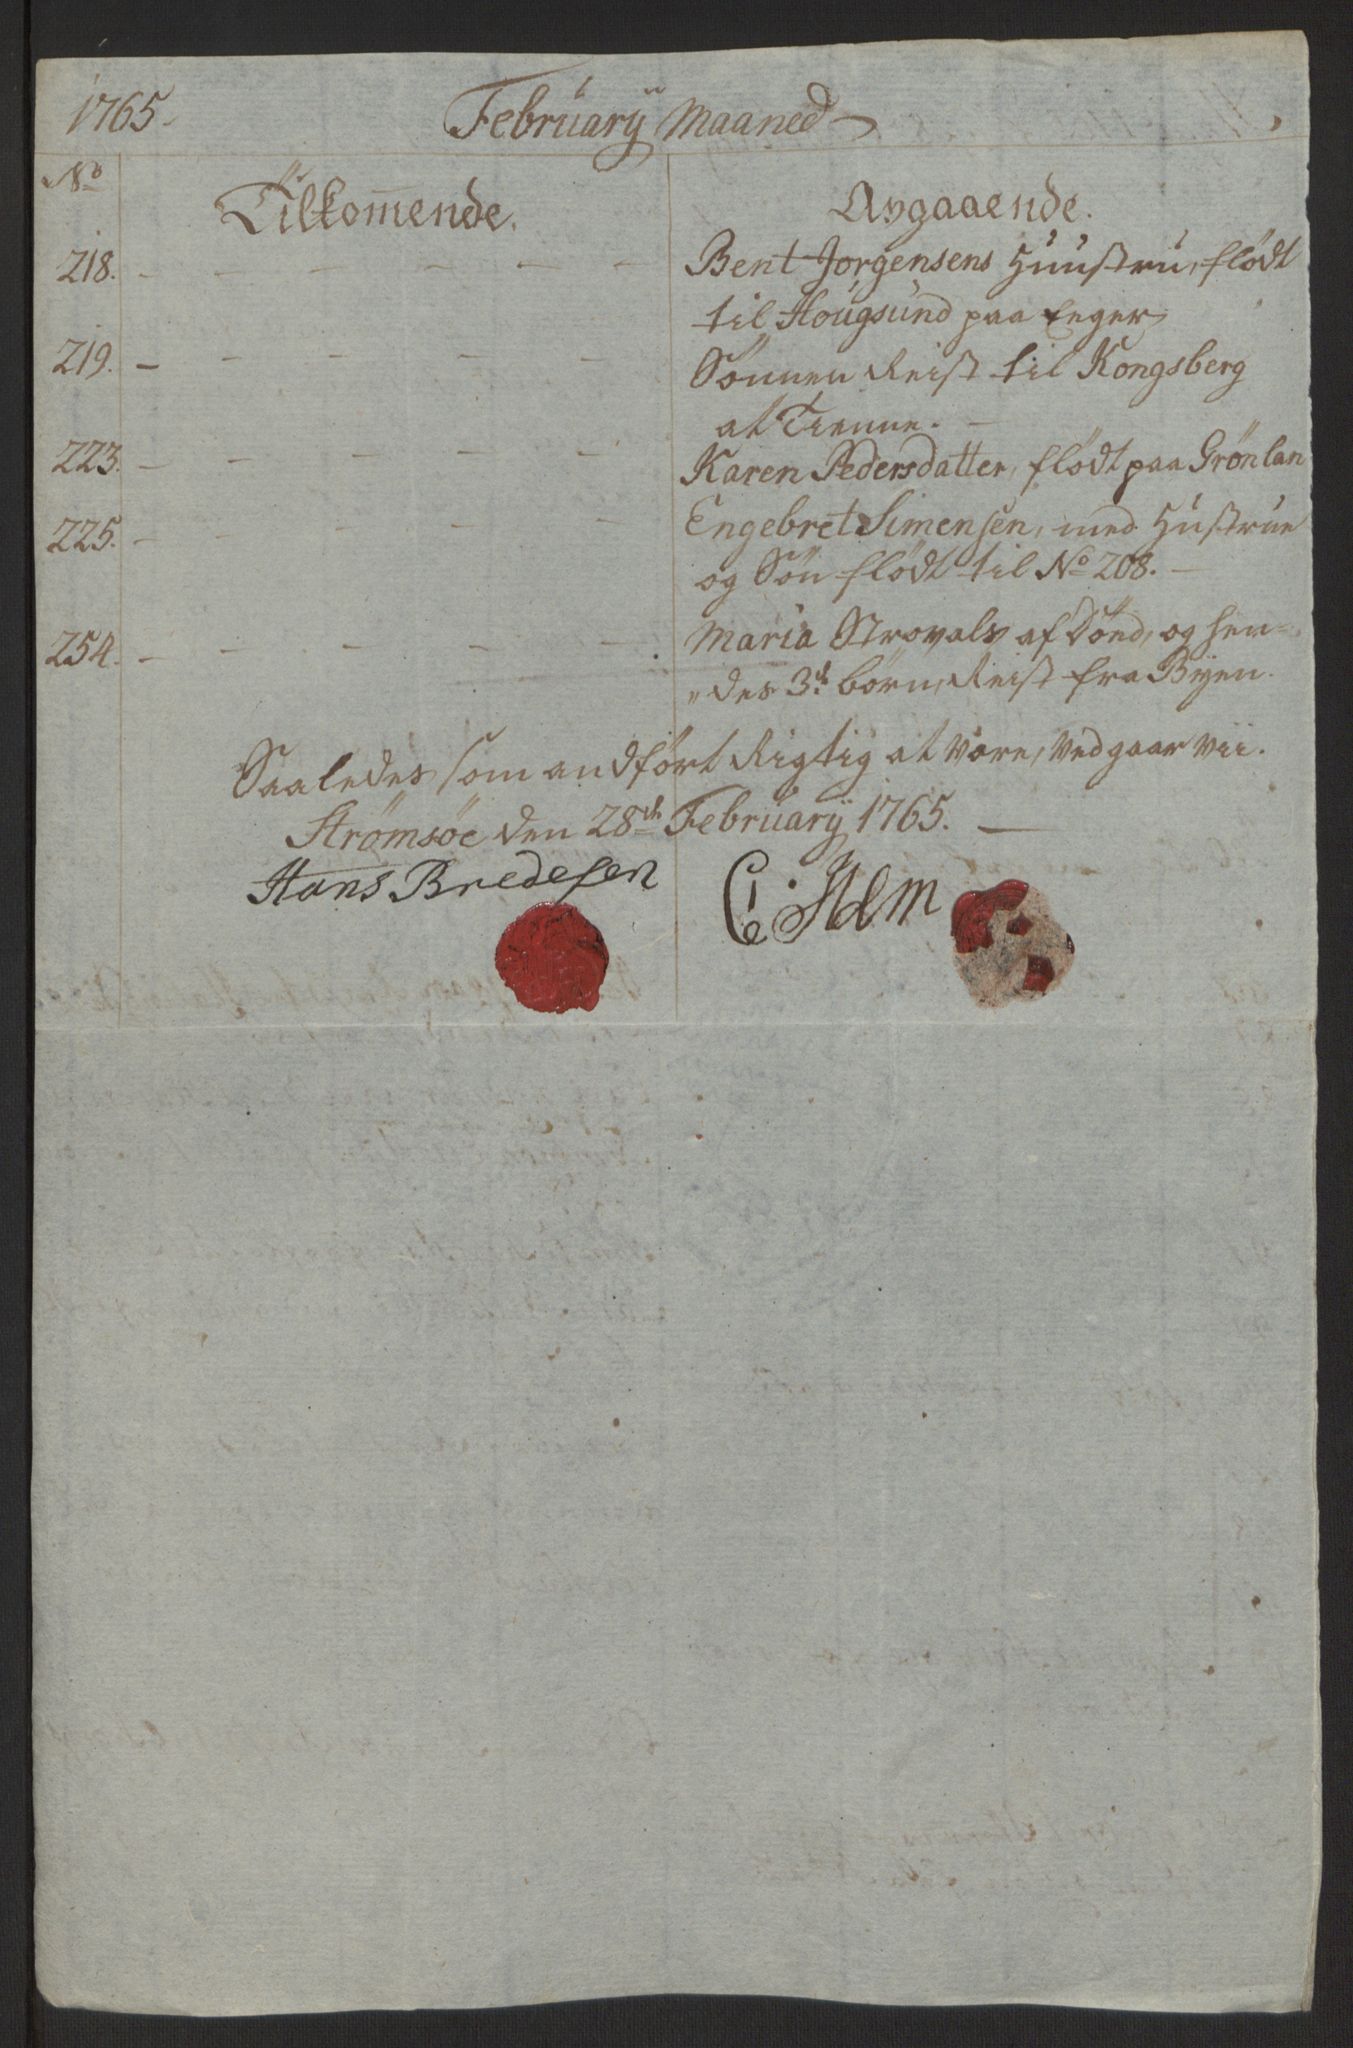 1765.
Februarÿ Maaned
No
Tilkom̅ende.
Avgaaende.
218. - - - - - - Bent Jorgensens Huustru, flödt
til Hougsund paa Eeger
219. - - - - - Sönnen Reist til Kongsberg
at Tienne. -
223. - - - - - Karen Pedersdatter, flödt paa Grönlan
225. - - - - - Engebret Simensen, med Hustrue
og Sön flödt til No 208. -
254. - - - - - Maria Strovals af Död, og hen-
des 3de börn, Reist fra Byen.
Saaledes som andfört Rigtig at være, vedgaar vii.
Strömsöe den 28de Februarÿ 1765. -
Hans Bredesen